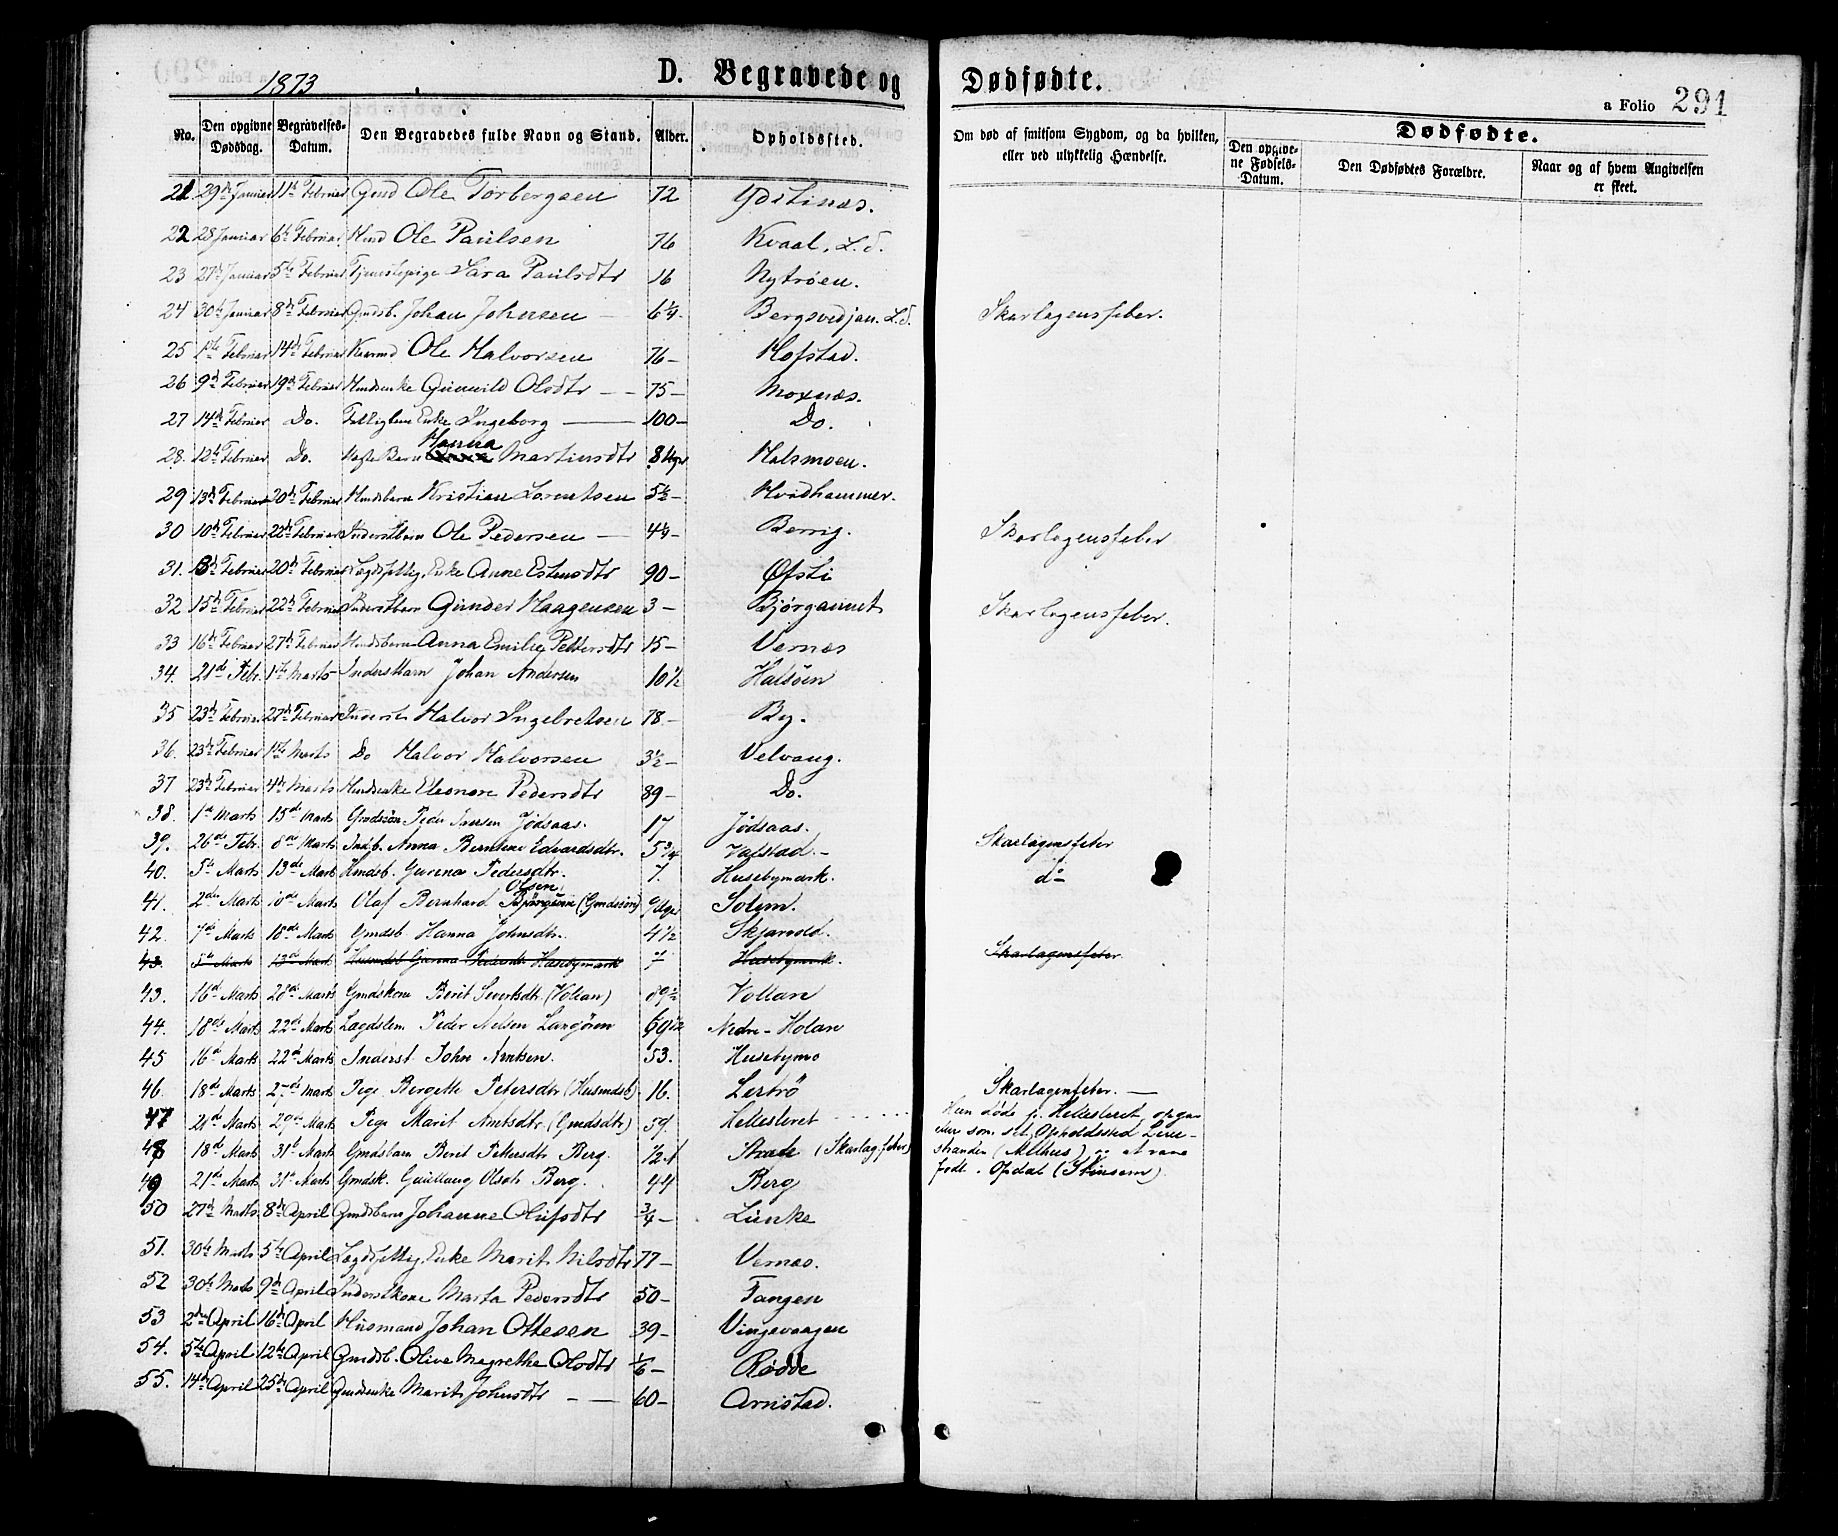 1873
D. Begravede og Dødfødte.
a Folio 291
No. Den opgivne Dødsdag. Begravelses-Datum. Den Begravedes fulde Navn og Stand. Alder. Opholdssted. Om død af smitsom Sygdom, og da hvilken, eller ved ulykkelig Hændelse. Dødfødte. Den opgivne Fødsels-Datum. Den Dødfødtes Forældre. Naar og af hvem Angivelsen er skeet.
21 29de Januar 11te Februar Gmd Ole Torbergsen 72 Ydstines.
22 28 Januar 6te Februar Hmd Ole Paulsen 76 Kvaal, L.S.
23 27de Januar 5te Februar Tjenestepige Sara Paulsdtr 16 Nytrøen.
24 30te Januar 8de Februar Gmdsb. Johan Johnsen 6¼ Bergsvedjan. L.S. Skarlagensfeber.
25 1ste Februar 14de Februar Kaarmd Ole Halvorsen 76 – Hofstad.
26 9de Februar 19de Februar Hmdsenke Gunnild Olsdtr 75 – Moxnæs.
27 14de Februar Do. Fattiglem Enke Ingeborg 100 – Do.
28. 12te Februar Do. Barn Hanna Martinsdtr 8 Uger Halsmoen.
29 13de Februar 20de Februar Hmdsbarn Kristian Lorentsen 5½ – Hvidhammer.
30 10de Februar 22de Februar Inderstbarn Ole Pedersen 4¼ – Berrig. Skarlagensfeber
31. 13de Februar 20de Februar Lægdsfattig. Enke Anne Estensdtr 90 – Øfsti
32 15de Februar 22de Februar Inderstbarn Gunder Haagensen 3 – Bjørganmet Skarlagensfeber.
33 16de Februar 27de Februar Hmdsbarn Anna Emilie Pettersdtr 15 – Vernes
34. 21de Febr. 1ste Marts Inderstbarn Johan Andersen 10½ Halsöen
35 23de Februar 27de Februar Inderst Halvor Ingebretsen 78. – By.
36. 23de Februar 1ste Marts Do Halvor Halvorsen 3½ – Velvang.
37 23de Februar 4de Marts Hmdsenke Eleonore Pedersdtr 89 – Do.
38. 1ste Marts 15de Marts Gmdsön Peder Iversen Jødsaas. 17 Jødsaas.
39. 26de Febr. 8de Marts Indb. Anna Berntine Edvardsdtr. 5¾ Valstad. – Skarlagensfeber
40. 5te Marts 13de Mart Hmdsb. Gurina Pedersdtr. 7. Husebymark. do
41. 2den Marts 10de Marts Olaf Bernhard Olsen (Gmdssön) 9 Uger Solem.
42. 7de Marts 18de Mart Gmdsb Hanna Johnsdtr. 4½ Skjervold.
43. 5te Marts 13de Mart Husmdsb Gurina Pedersdtr Husebymark 7 Husebymark. Skarlagensfeber.
43. 16de Marts 28de Marts Gmdskone Berit Sivertsdtr. (Vollan) 89½ Vollan
44. 18de Marts 22de Marts Lægdslem Peder Nelsen Langören 69½ Nedre-Holan
45 16de Marts 22de Marts Inderst John Arntsen. 53. Husebymo
46. 18de Marts 27de Marts Pige Bergitte Petersdtr (Husmdsb) 16. Lerbrö Skarlagensfeber. –
47 21de Marts 29de Marts Pige Marit Arntsdtr. (Gmdsdtr) 59. Hellesteret Hun døde p. Hellesteret, opga
48 18de Marts 31te Marts Gmdsbarn Berit Pettersdtr Berg. (Skarlag.feber) som sit Opholdssted
stranden (Melhus) og at være
49 21de Marts 31te Marts Gmdsk. Gunlaug Olsdtr Berg. 44 Berg født i Opdal
50 27de Marts 8de April Gmdsbarn Johanne Olufsdtr ¾ – Lünke
51. 30te Marts 5te April Lægdsfattig. Enke Marit Nilsdtr 77 – Vernæs.
52 30te Marts 9de April Inderstkone Marta Pedersdtr 50 – Tangen
53 2den April 16de April Husmand Johan Ottesen 39 – Vingevaagen
54. 5te April 12te April Gmdsb. Olive Magrethe Olsdtr 1/6 – Rødde
55. 14de April 25de April Gmdsenke Marit Johnsdtr 60 – Arnstad.